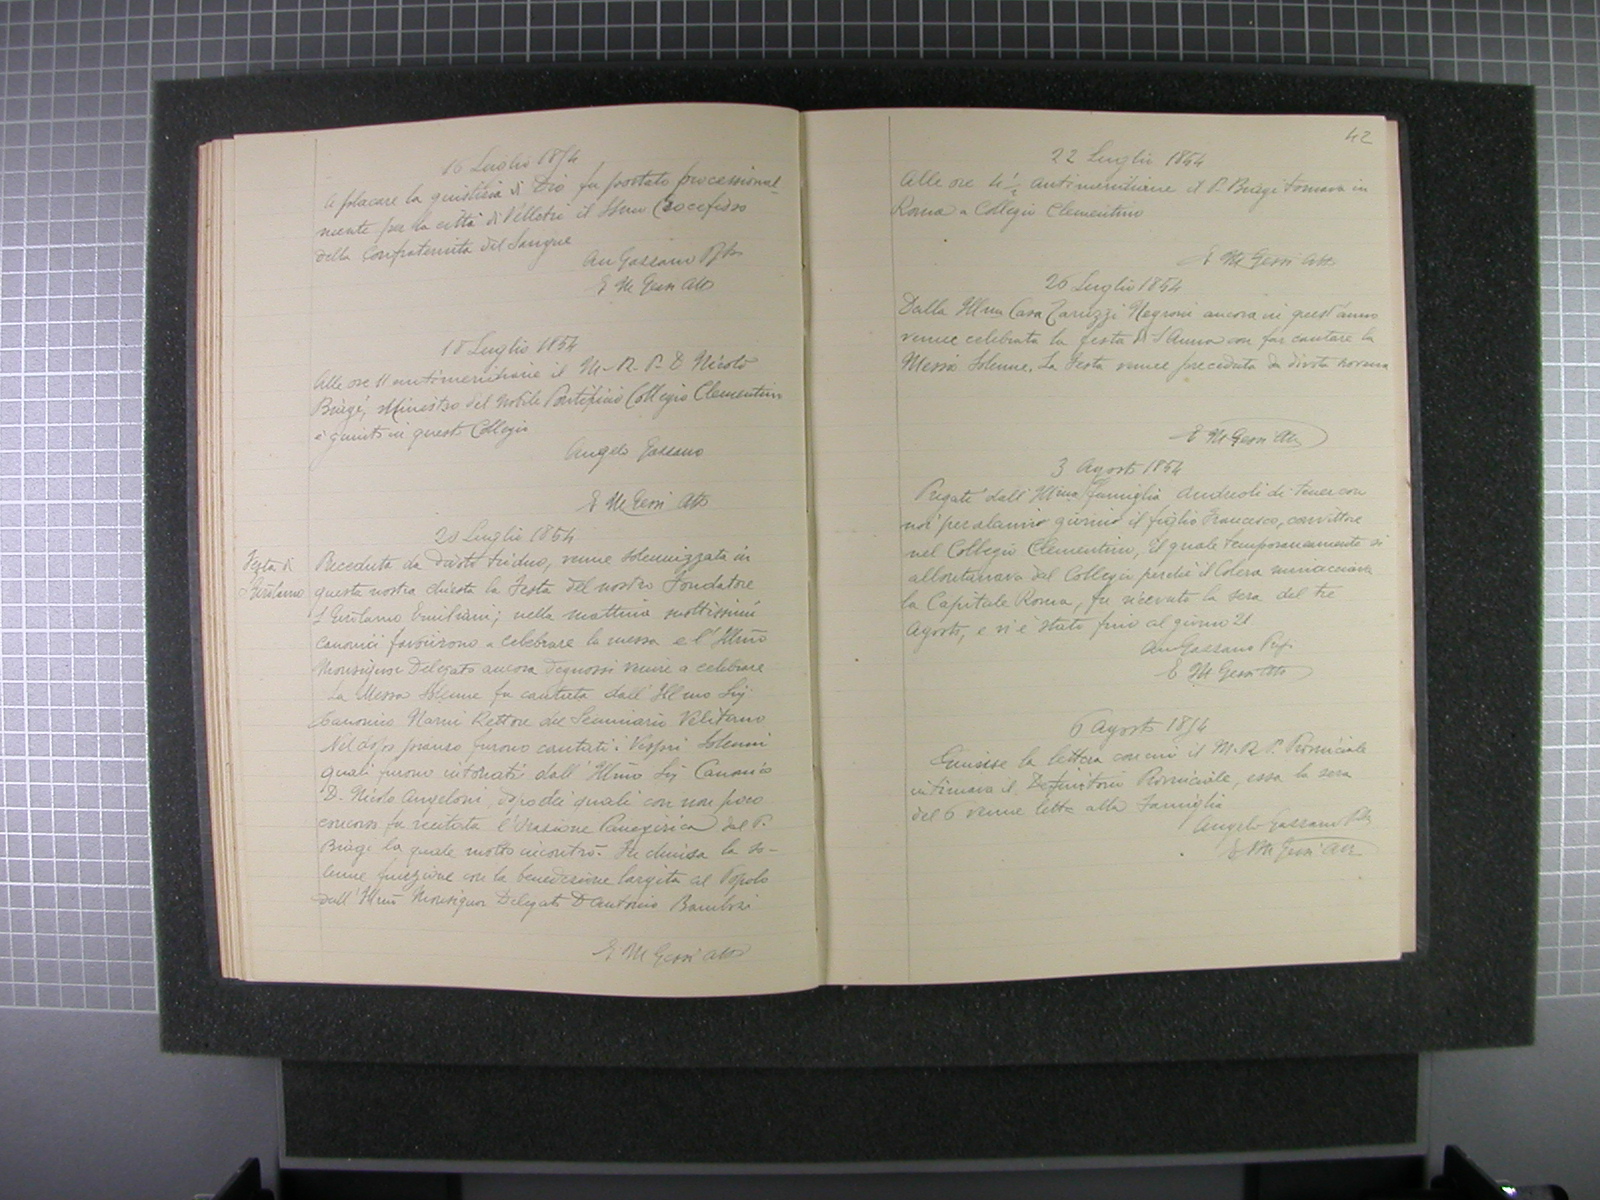 16 Luglio 1854
A placare la giustizia di Dio fu portato processional-
mente per la città di Velletri il SSmo Crocefisso
della Confraternita del Sangue
An Gassano Pfto
E M Gessi Atto
18 Luglio 1854
Alle ore 11 antimeridiane il M. R. P. D Nicolò
Biagi, Ministro del Nobile Pontificio Collegio Clementino
è giunto in questo Collegio
Angelo Gassano
E M Gessi Atto
20 Luglio 1854
Festa di
S Girolamo
Preceduta da divoto triduo, venne solennizzata in
questa nostra chiesa la Festa del nostro Fondatore
S Girolamo Emiliani; nella mattina moltissimi
canonici favorirono a celebrare la messa e l'Illmo
Monsignor Delegato ancora degnossi venire a celebrare
La Messa solenne fu cantata dall'Illmo Sig
Canonico Nami Rettore del Seminario Veliterno
Nel dopo pranzo furono cantati i Vespri solenni
quali furono intonati dall'Illmo Sig Canonico
D. Nicola Angeloni, dopo dei quali con non poco
concorso fu recitata l'orazione Panegirica dal P.
Biagi la quale molto incontrò. Fu chiusa la so-
lenne funzione con la benedizione largita al Popolo
dall'Illmo Monsignor Delegato D Antonio
E M Gessi Atto
42
22 Luglio 1854
Alle ore 4 1/2 antimeridiane il P. Biagi tornava in
Roma a Collegio Clementino
E M Gessi Atto
26 Luglio 1854
Dalla Illma Casa Negroni ancora in quest'anno
venne celebrata la festa di S Anna con far cantare la
Messa solenne. La Festa venne preceduta da divota novena
E M Gessi Atto
3 Agosto 1854
Pregati dall'Illma famiglia Andreoli di tener con
noi per alcuni giorni il figlio Francesco, convittore
nel Collegio Clementino, il quale temporaneamente si
allontanava dal Collegio perchè il Colera minacciava
la Capitale Roma, fu ricevuto la sera del tre
Agosto, e vi è stato fino al giorno 21
An Gassano Pfto
E M Gessi Atto
6 Agosto 1854
Emisse la lettera con cui il M. R P. Provinciale
intimava il Definitorio Provinciale, essa la sera
del 6 venne letta alla Famiglia
Angelo Gassano Pfto
E M Gessi Atto